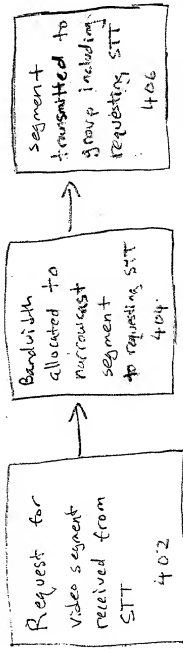 Request for
video segment
received from
STT
402
Bandwidth
allocated to
narrowcast
segment
to requesting STT
404
segment
transmitted to
group including
requesting STT
406